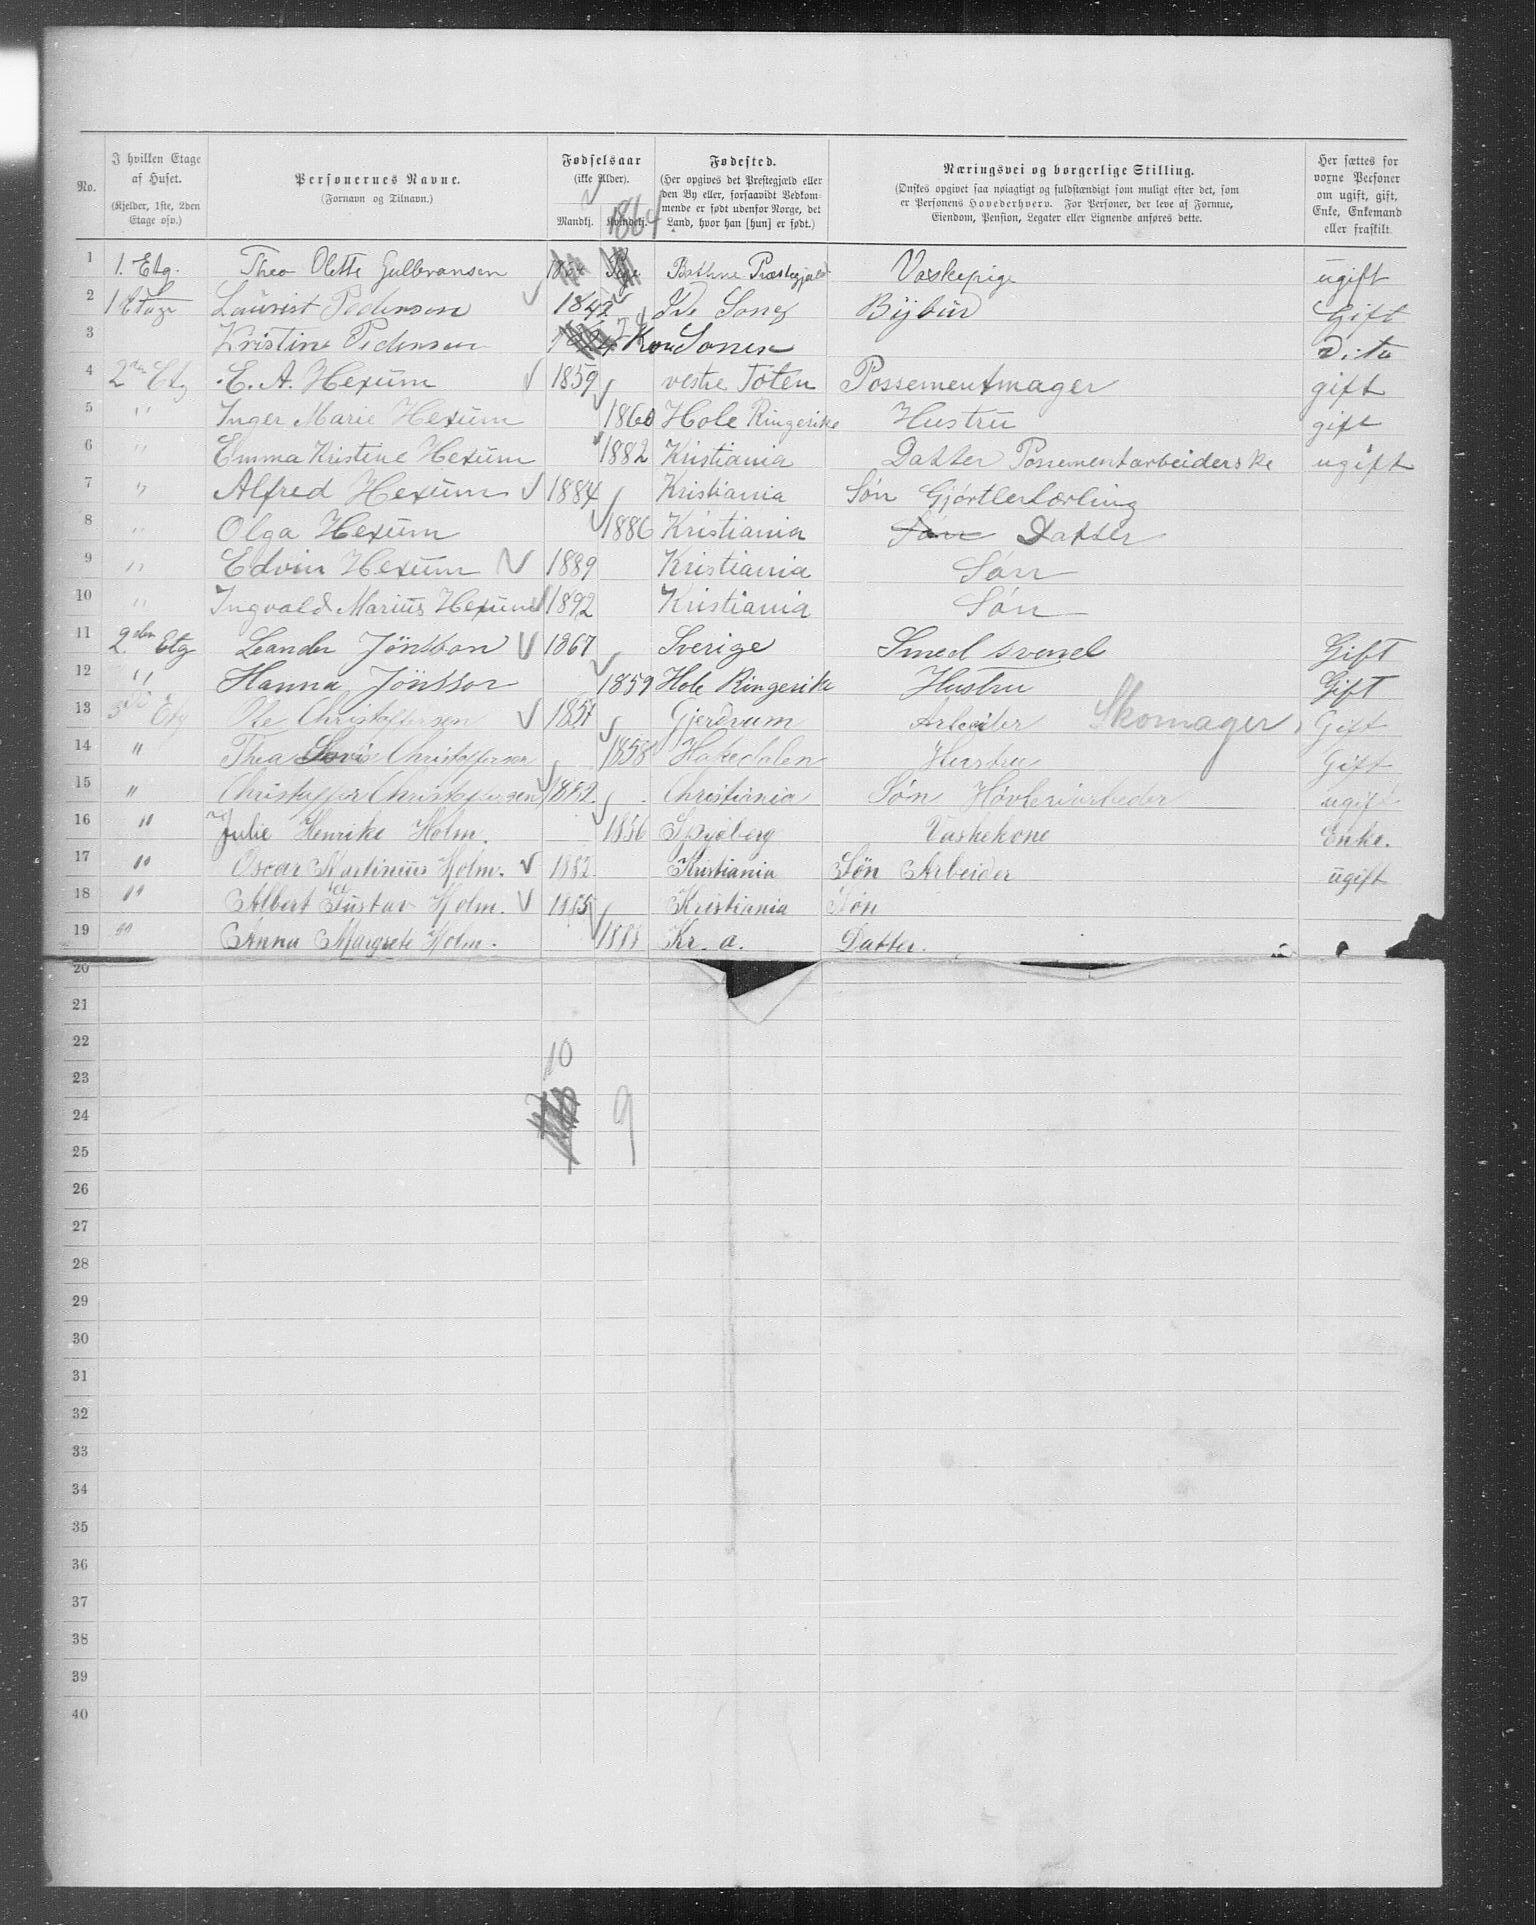 No.
I hvilken Etage af Huset. (Kjelder, 1ste, 2den Etage osv.)
Personernes Navne. (Fornavn og Tilnavn.)
Fødselsaar (ikke Alder). Mandkj. Kvindekj.
Fødested. (Her opgives det Prestegjæld eller den By eller, forsaavidt Vedkommende er født udenfor Norge, det Land, hvor han [hun] er født.)
Næringsvei og borgerlige Stilling. (Ønskes opgivet saa nøiagtigt og fuldstændigt som muligt efter det, som er Personens Hovederhverv. For Personer, der leve af Formue, Eiendom, Pension, Legater eller Lignende anføres dette.
Her sættes for voxne Personer om ugift, gift, Enke, Enkemand eller fraskilt.
1864
1 1. Etg. Thea Olette Gulbransen Pige Præstegjæld Vaskepige ugift
2 1 Etage Laurest Pedersen 1842 Bybud Gift
3 Kristine Pedersen Kone Sonen Dito
4 2den Etg E. A. Hexum 1859 vestre Toten Possementmager gift
5 " Inger Marie Hexum 1860 Hole Ringerike Hustru gift
6 " Emma Kristine Hexum 1882 Kristiania Datter Possementarbeiderske ugift
7 " Alfred Hexum 1884 Kristiania Søn Gjørtlerlærling
8 " Olga Hexum 1886 Kristiania Søn Datter
9 " Edvin Hexum 1889 Kristiania Søn
10 " Ingvald Marius Hexum 1892 Kristiania Søn
11 2den Etg Leander Jönsson 1867 Sverige Smedsvend Gift
12 " Hanna Jönsson 1859 Hole Ringerike Hustru Gift
13 3die Etg Ole Christoffersen 1857 Gjerdrum Arbeider Skomager Gift
14 " Thea Lovise Christoffersen 1858 Hakedalen Hustru Gift
15 " Christoffer Christoffersen 1882 Christiania Søn Høvleriarbeder ugift
16 " Julie Henrike Holm. 1856 Spydberg Vaskekone Enke.
17 " Oscar Martinius Holm. 1882 Kristiania Søn Arbeider ugift
18 " Albert Gustav Holm. 1885 Kristiania Søn
19 " Anna Margrete Holm. Kr. a. Datter.
20
21
22 10
23
24 9
25
26
27
28
29
30
31
32
33
34
35
36
37
38
39
40